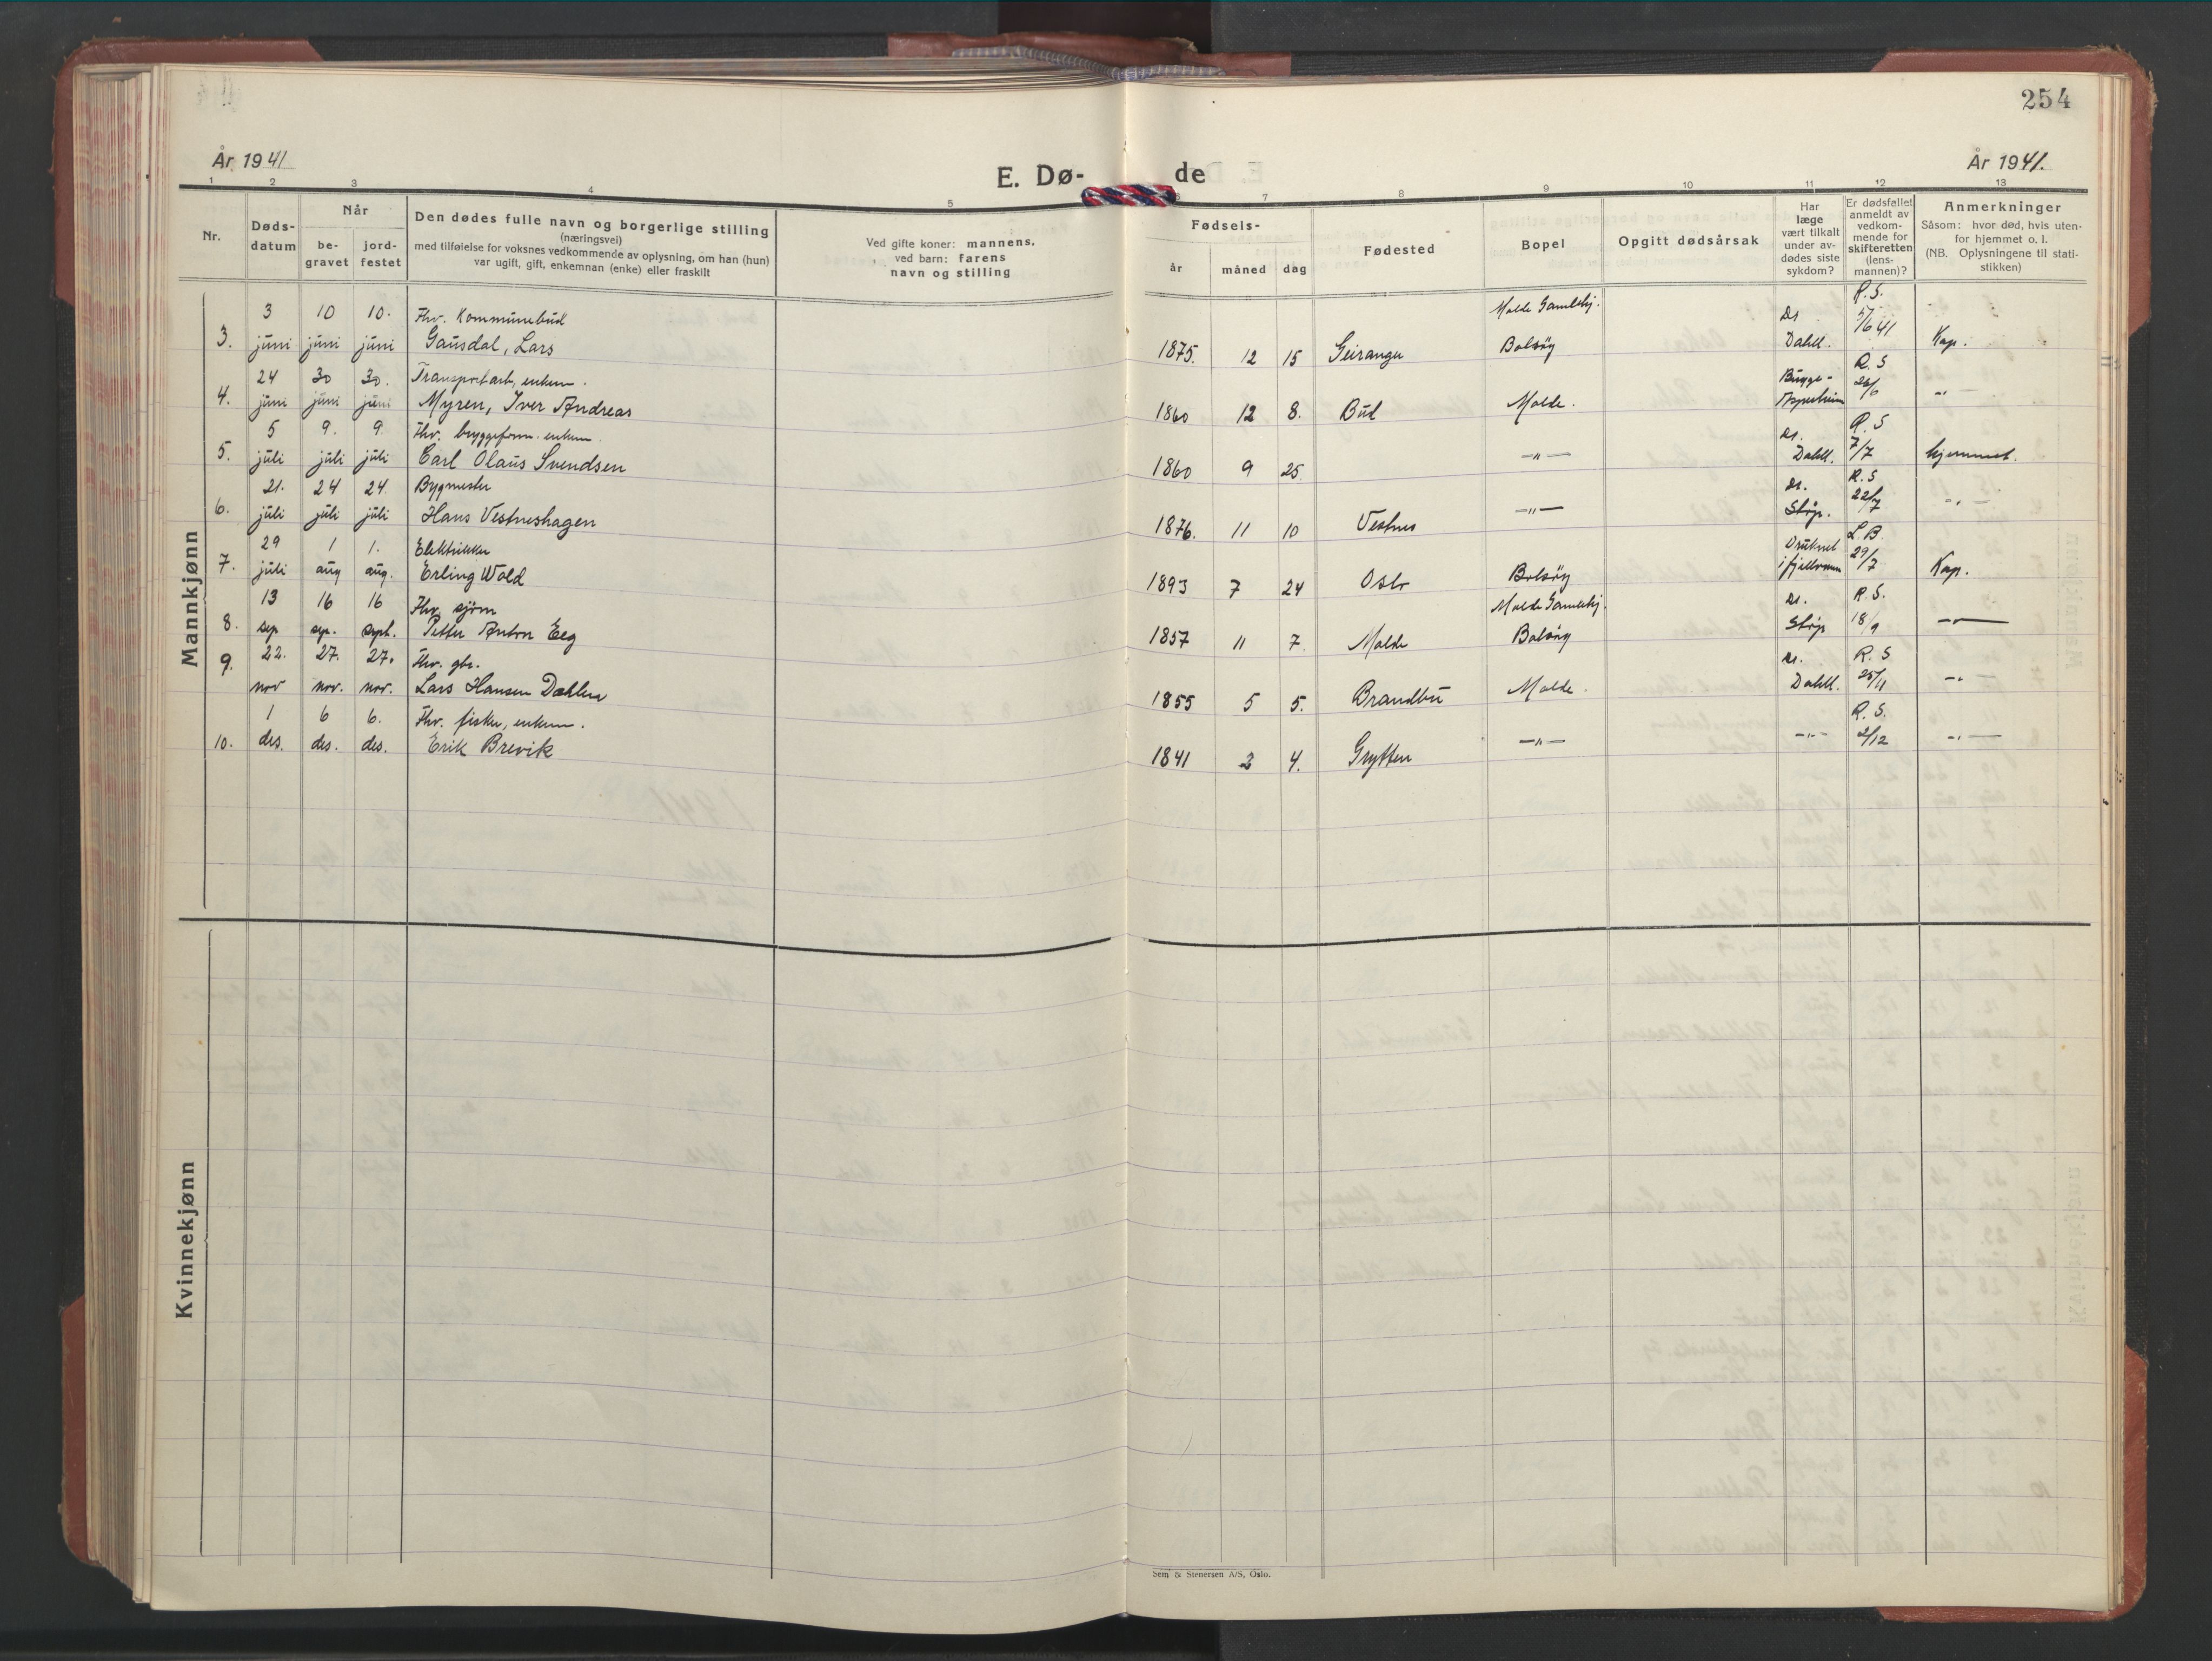 254
År 1941
E. Dø-
de
År 1941.
1 2 3 4 5 6 7 8 9 10 11 12 13
Nr.
Døds-
datum
Når
be-
gravet
jord-
festet
Den dødes fulle navn og borgerlige stilling
(næringsvei)
med tilføielse for voksnes vedkommende av oplysning, om han (hun)
var ugift, gift, enkemnan (enke) eller fraskilt
Ved gifte koner: mannens,
ved barn: farens
navn og stilling
Fødsels-
år måned dag
Fødested
Bopel
Opgitt dødsårsak
Har
læge
vært tilkalt
under av-
dødes siste
sykdom?
Er dødsfallet
anmeldt av
vedkom-
mende for
skifteretten
(lens-
mannen)?
Anmerkninger
Såsom: hvor død, hvis uten-
for hjemmet o. l.
(NB. Oplysningene til stati-
stikken)
Mannkjønn
3 10 10. Fhv. Kommunebud Molde Gamlehj. Dr. R. S.
3. juni juni juni Gausdal, Lars 1875. 12 15 Geiranger Bolsøy Dahll. 5/6 41 Kap.
24 30 30. Transportarb, enkem. R. S
4. juni juni juni Myren, Iver Andreas 1860 12 8. Bud Molde. -"-
5 9. 9. Fhv. bryggeform. enkem. Dr. R. S
5. juli juli juli Carl Olaus Svendsen 1860 9 25 -"- Dahll. 7/7 hjemmet.
21. 24 24. Bygmester Dr. R. S
6. juli juli juli Hans Vestneshagen 1876. 11 10 Vestnes -"- Strøp. 22/7 -"-
29 1 1. Elektriker Druknet L. B
7. juli aug aug. Erling Wold 1893 7 24 Oslo Bolsøy i fjellvann 29/7 Kap.
13 16 16 Fhv. sjøm Molde Gamlehj. Dr. R. S.
8. sep sep. sept. Petter Anton Eeg 1857 11 7. Molde Bolsøy Strøp 18/9 -"-
9. 22. 27. 27. Fhv. gbr. Dr. R. S
nov nov. nov. Lars Hansen Dæhlen 1855 5 5. Brandbu Molde. Dahll. 25/11 -"-
1 6 6. Fhv. fisker, enkem. R. S.
10. des. des. des. Erik Brevik 1841 2 4. Grytten -"- -"- 2/12 -"-
Kvinnekjønn
Sem & Stenersen A/S, Oslo.